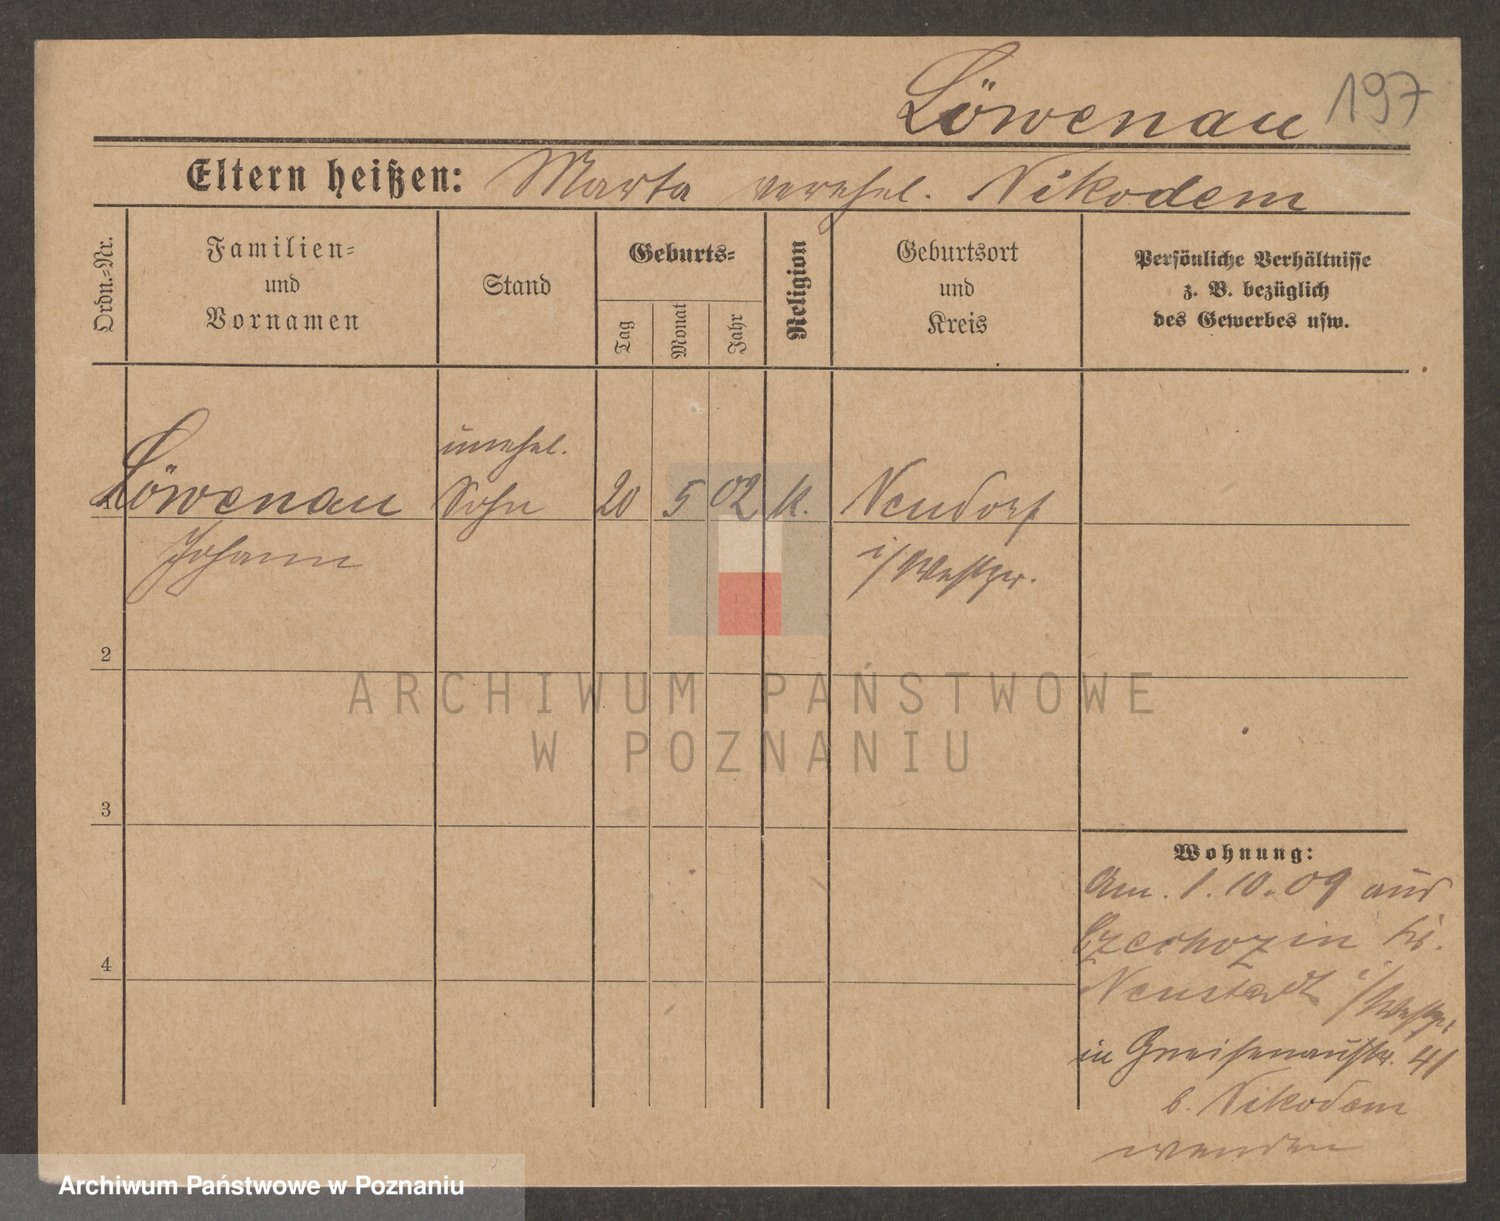 Löwenau 197
Eltern heißen: Marta verehel. Nikodem
Ordn.-Nr.
Familien-
und
Vornamen
Stand
Geburts-
Tag
Monat
Jahr
Religion
Geburtsort
und
Kreis
Persönliche Verhältnisse
z. B. bezüglich
des Gewerbes usw.
unehel.
1 Löwenau Sohn 20 5 02 k. Neudorf
Johann i/Westpr.
2
3
4
Wohnung:
Am 1.10.09 aus
Czechozin Kr.
Neustadt i/Westpr.
in Gneisenaustr. 41
b. Nikodem
wenden
ARCHIWUM PAŃSTWOWE
W POZNANIU
Archiwum Państwowe w Poznaniu